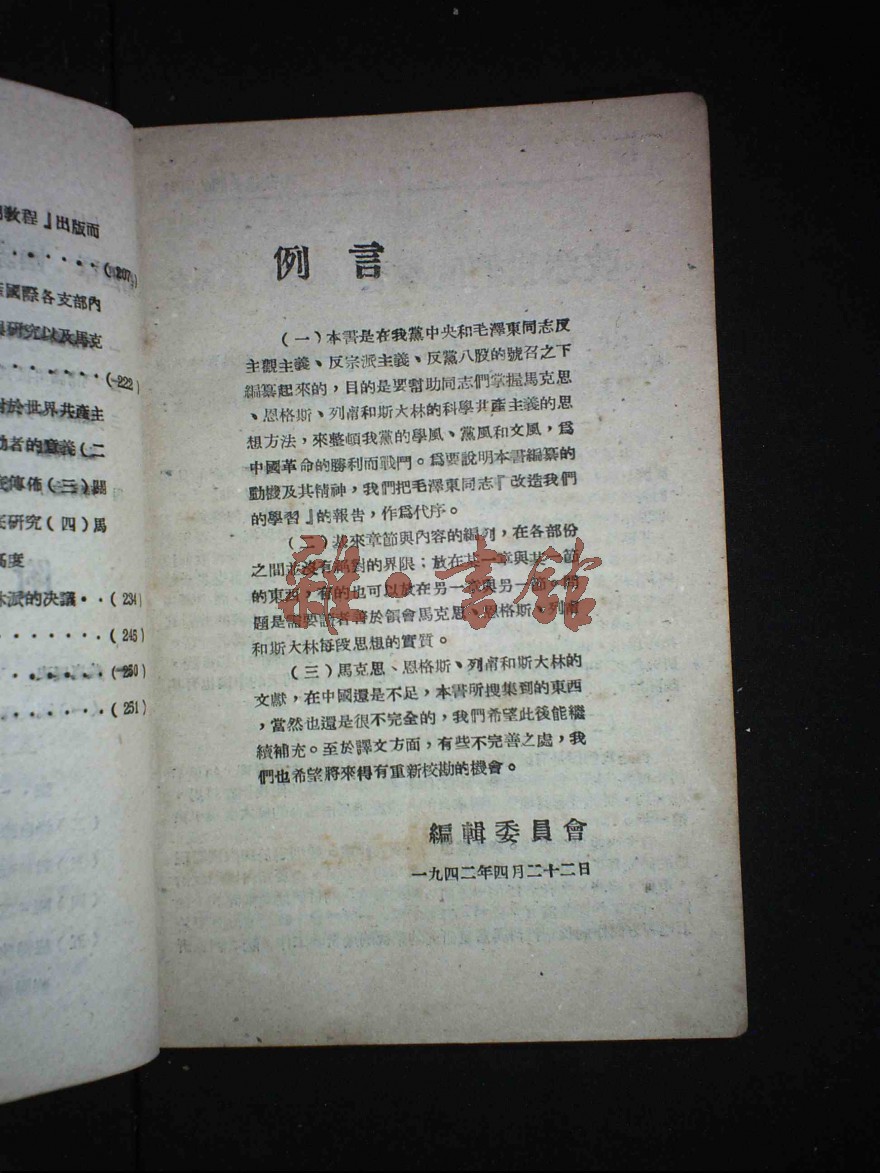 例言
(一)本書是在我黨中央和毛澤東同志反
主觀主義、反宗派主義、反黨八股的號召之下
編纂起來的,目的是要幫助同志們掌握馬克思
、恩格斯、列甯和斯大林的科學共產主義的思
想方法,來整頓我黨的學風、黨風和文風,爲
中國革命的勝利而戰鬥。爲要說明本書編纂的
動機及其精神,我們把毛澤東同志『改造我們
的學習』的報告,作爲代序。
(二)
章節與內容的編列,在各部份
之間並沒有絕對的界限;放在某一章與某一節
的東西,有的也可以放在另一章與另一節。問
題是需要讀者善於領會馬克思、恩格斯、列甯
和斯大林每段思想的實質。
(三)馬克思、恩格斯、列甯和斯大林的
文獻,在中國還是不足,本書所搜集到的東西
,當然也還是很不完全的,我們希望此後能繼
續補充。至於譯文方面,有些不完善之處,我
們也希望將來得有重新校勘的機會。
編輯委員會
一九四二年四月二十二日
教程』出版而
(207)
國際各支部內
研究以及馬克
(222)
對於世界共產主
動者的意義(二
傳佈(三)關
研究(四)馬
高度
派的決議··(234)
(245)
(250)
(251)
雜·書館